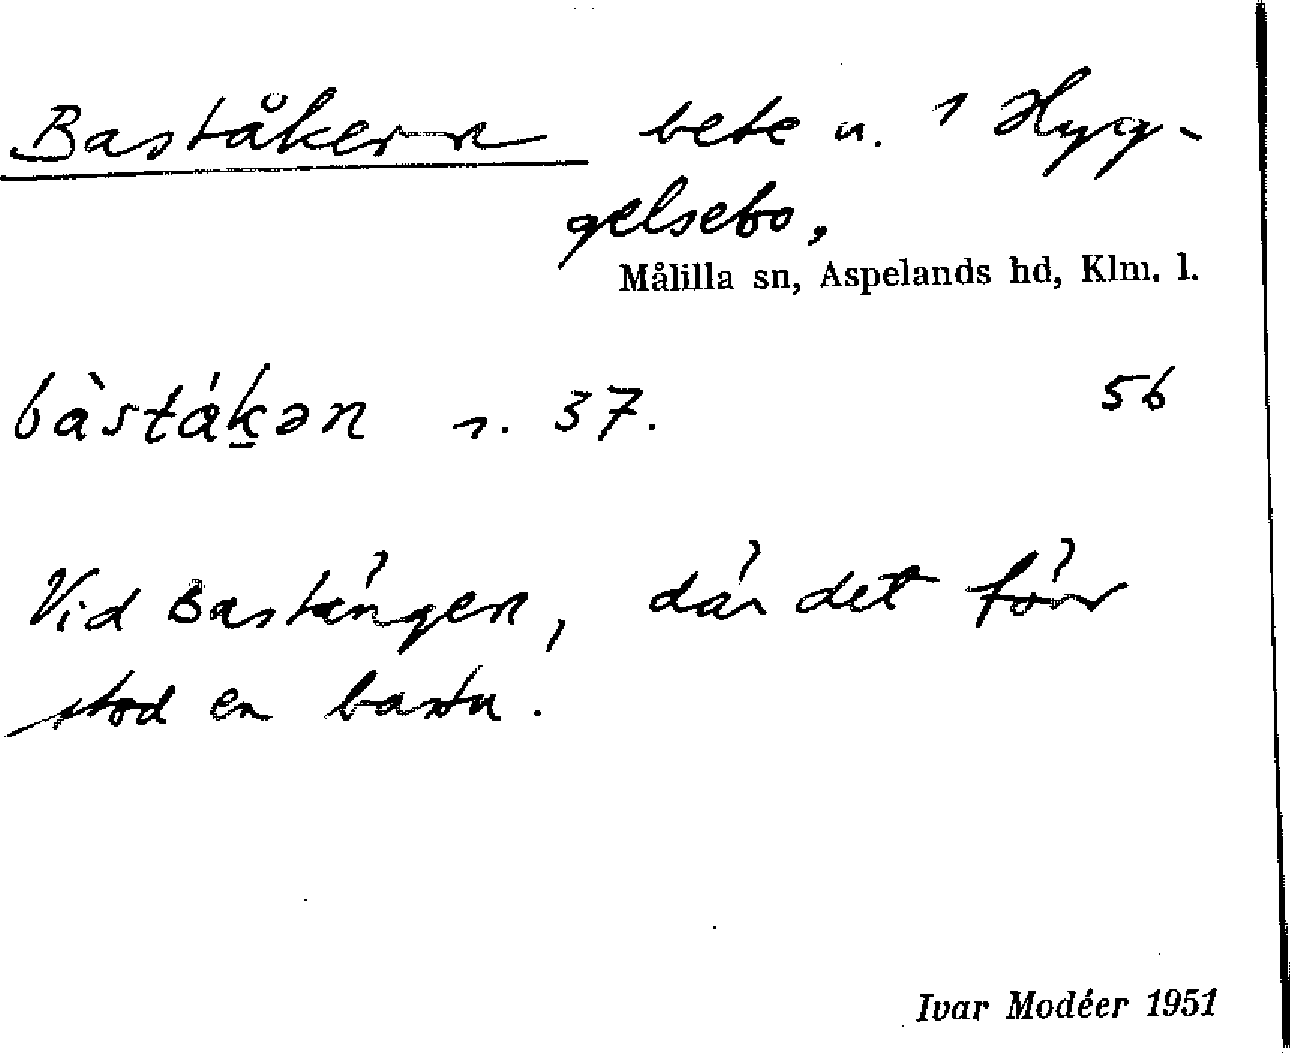 Baståkern bete u. 1 Hyg-
gelsebo,
Målilla sn, Aspelands hd, Klm. l.
bàstákən 1. 37. 56
Vid Bastängen, där det förr
stod en bastu.
Ivar Modéer 1951